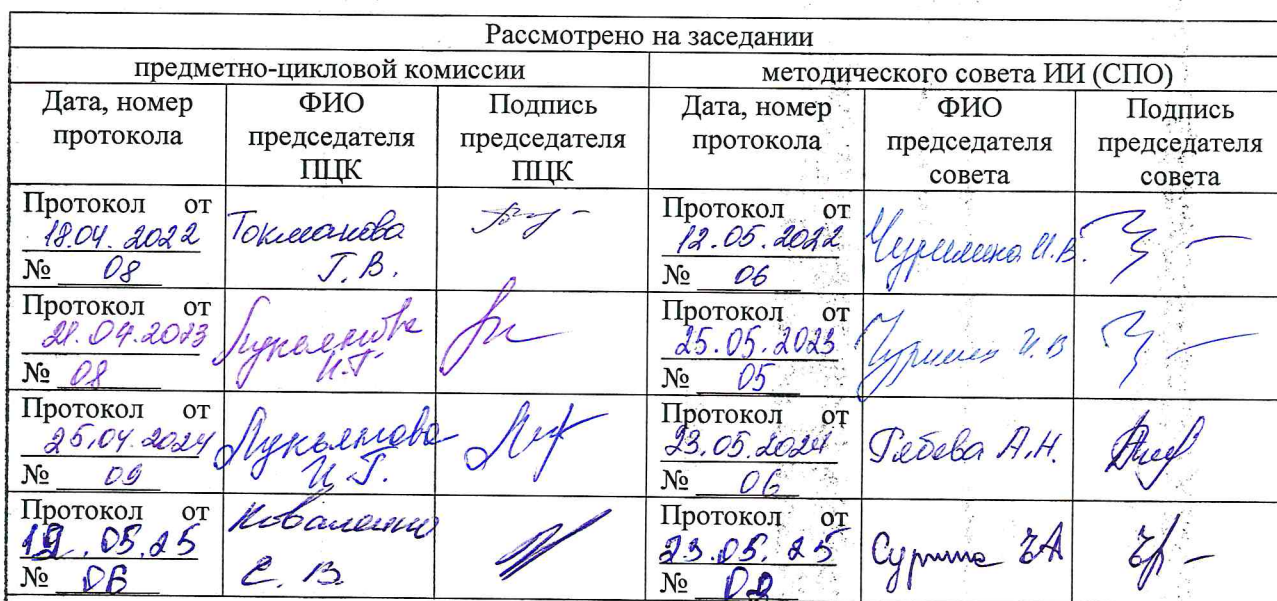 Рассмотрено на заседании
предметно-цикловой комиссии методического совета ИИ (СПО)
Дата, номер протокола ФИО председателя ПЦК Подпись председателя ПЦК Дата, номер протокола ФИО председателя совета Подпись председателя совета
Протокол от 18.04.2022 № 08 Токманова Г.В. Протокол от 12.05.2022 № 06 Чурилина И.В.
Протокол от 21.04.2023 № 08 Лукьянова И.Г. Протокол от 25.05.2023 № 05 И.В
Протокол от 25.04.2024 № 09 Лукьянова И.Г. Протокол от 23.05.2024 № 06 А.Н.
Протокол от 05.25 № 06 С.В. Протокол от 23.05.25 №